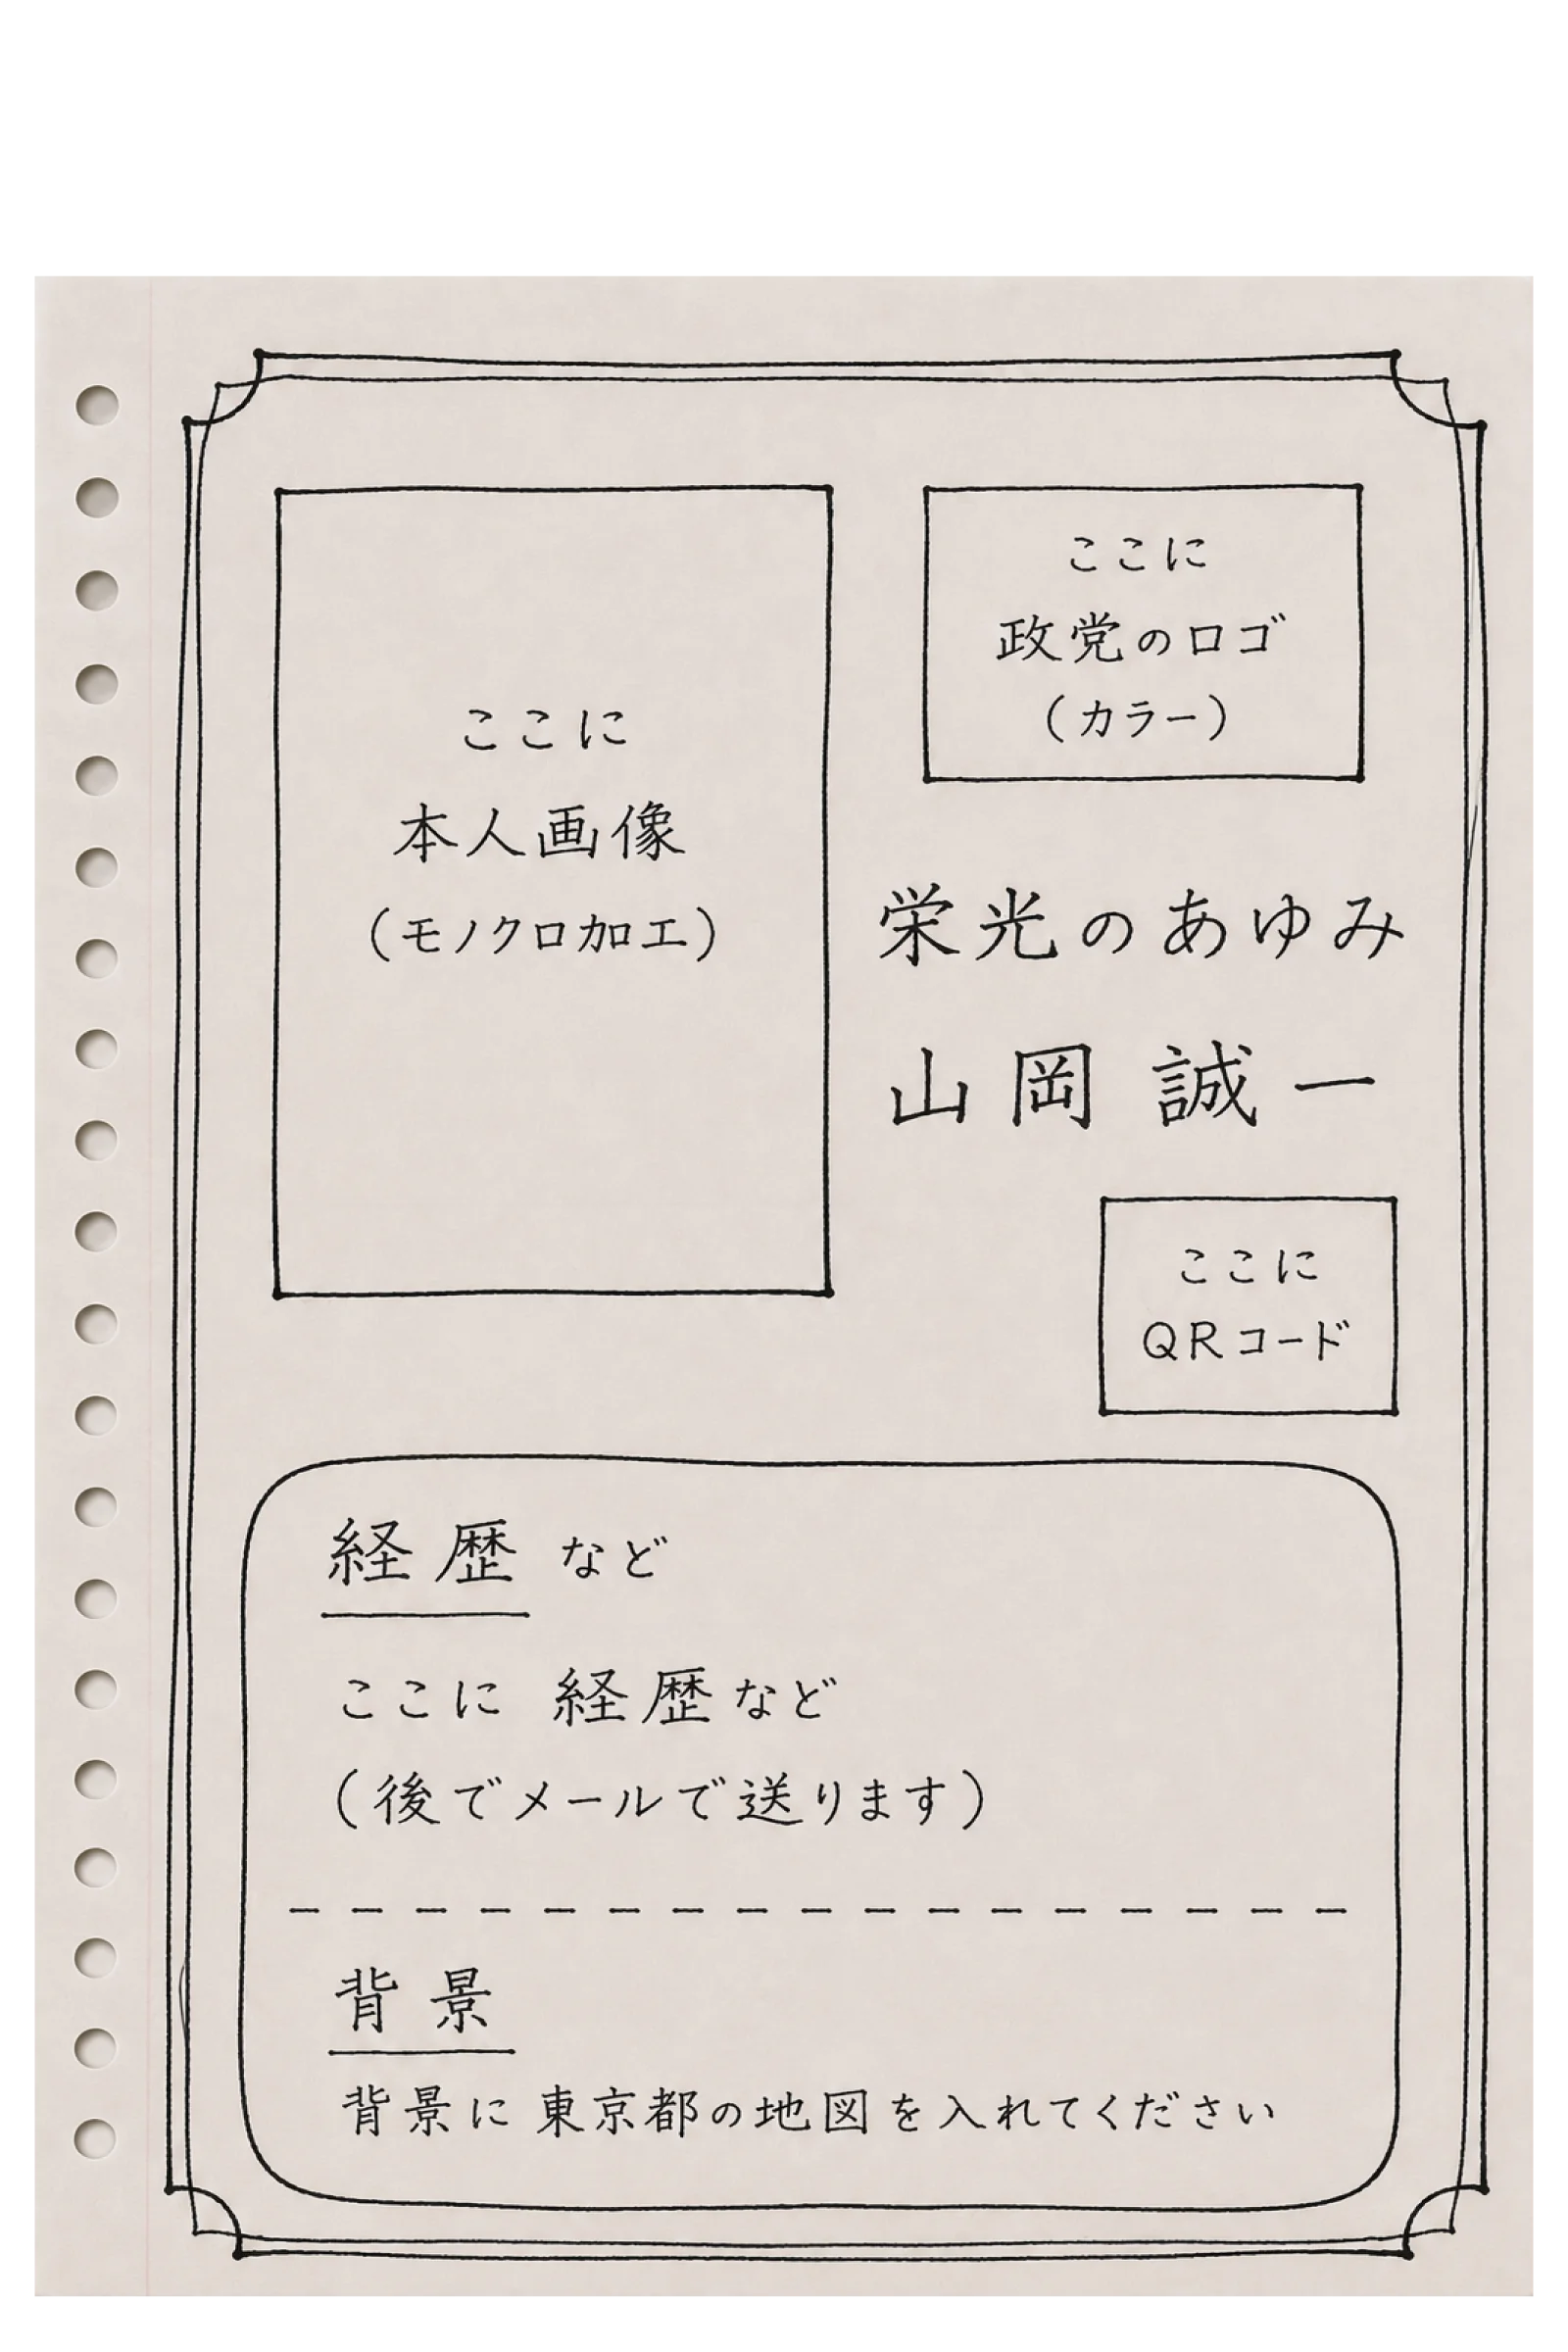 ここに
本人画像
(モノクロ加工)
ここに
政党のロゴ
(カラー)
栄光のあゆみ
山岡 誠一
ここに
QRコード
経歴 など
ここに 経歴など
(後でメールで送ります)
背景
背景に 東京都の地図 を入れてください